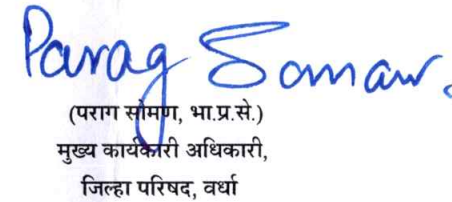 Parag Soman.
(पराग सोमण, भा.प्र.से.)
मुख्य कार्यकारी अधिकारी,
जिल्हा परिषद, वर्धा